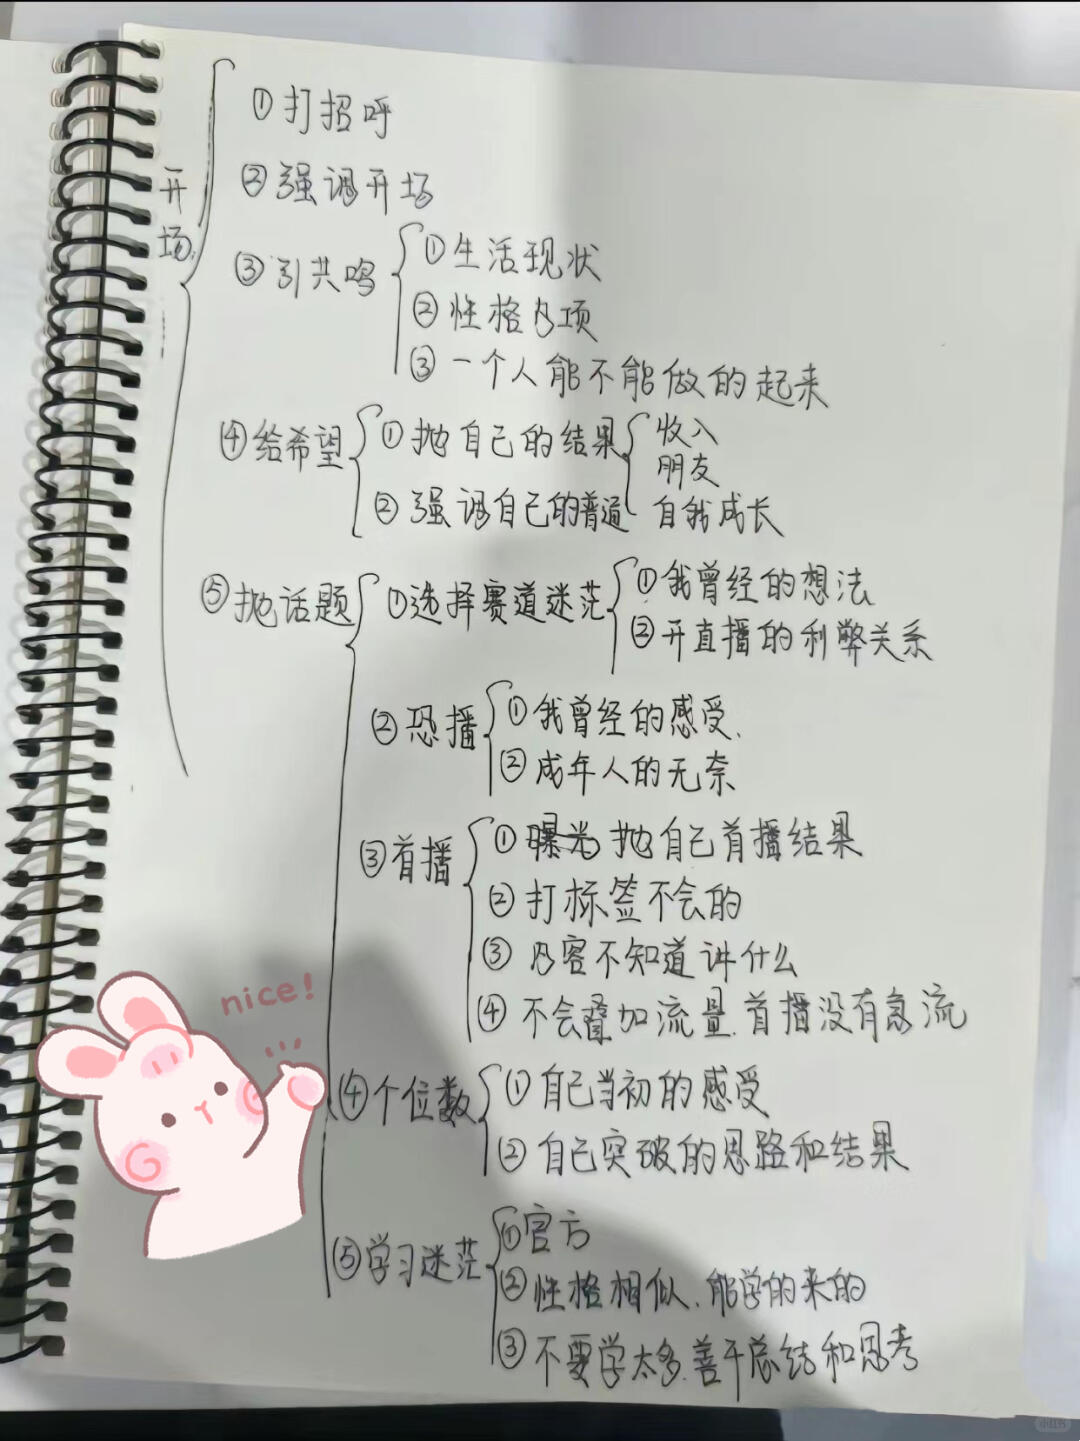 开场
①打招呼
②强调开场
③引共鸣
①生活现状
②性格内项
③一个人能不能做的起来
④给希望
①抛自己的结果
收入
朋友
②强调自己的普通
自我成长
⑤抛话题
①选择赛道迷茫
①我曾经的想法
②开直播的利弊关系
②恐播
①我曾经的感受.
②成年人的无奈
③首播
①曝光 抛自己首播结果
②打标签不会的
③内容不知道讲什么
④不会叠加流量.首播没有急流
nice!
④个位数
①自己当初的感受
②自己突破的思路和结果
⑤学习迷茫
①官方
②性格相似.能学的来的
③不要学太多.善于总结和思考
小红书